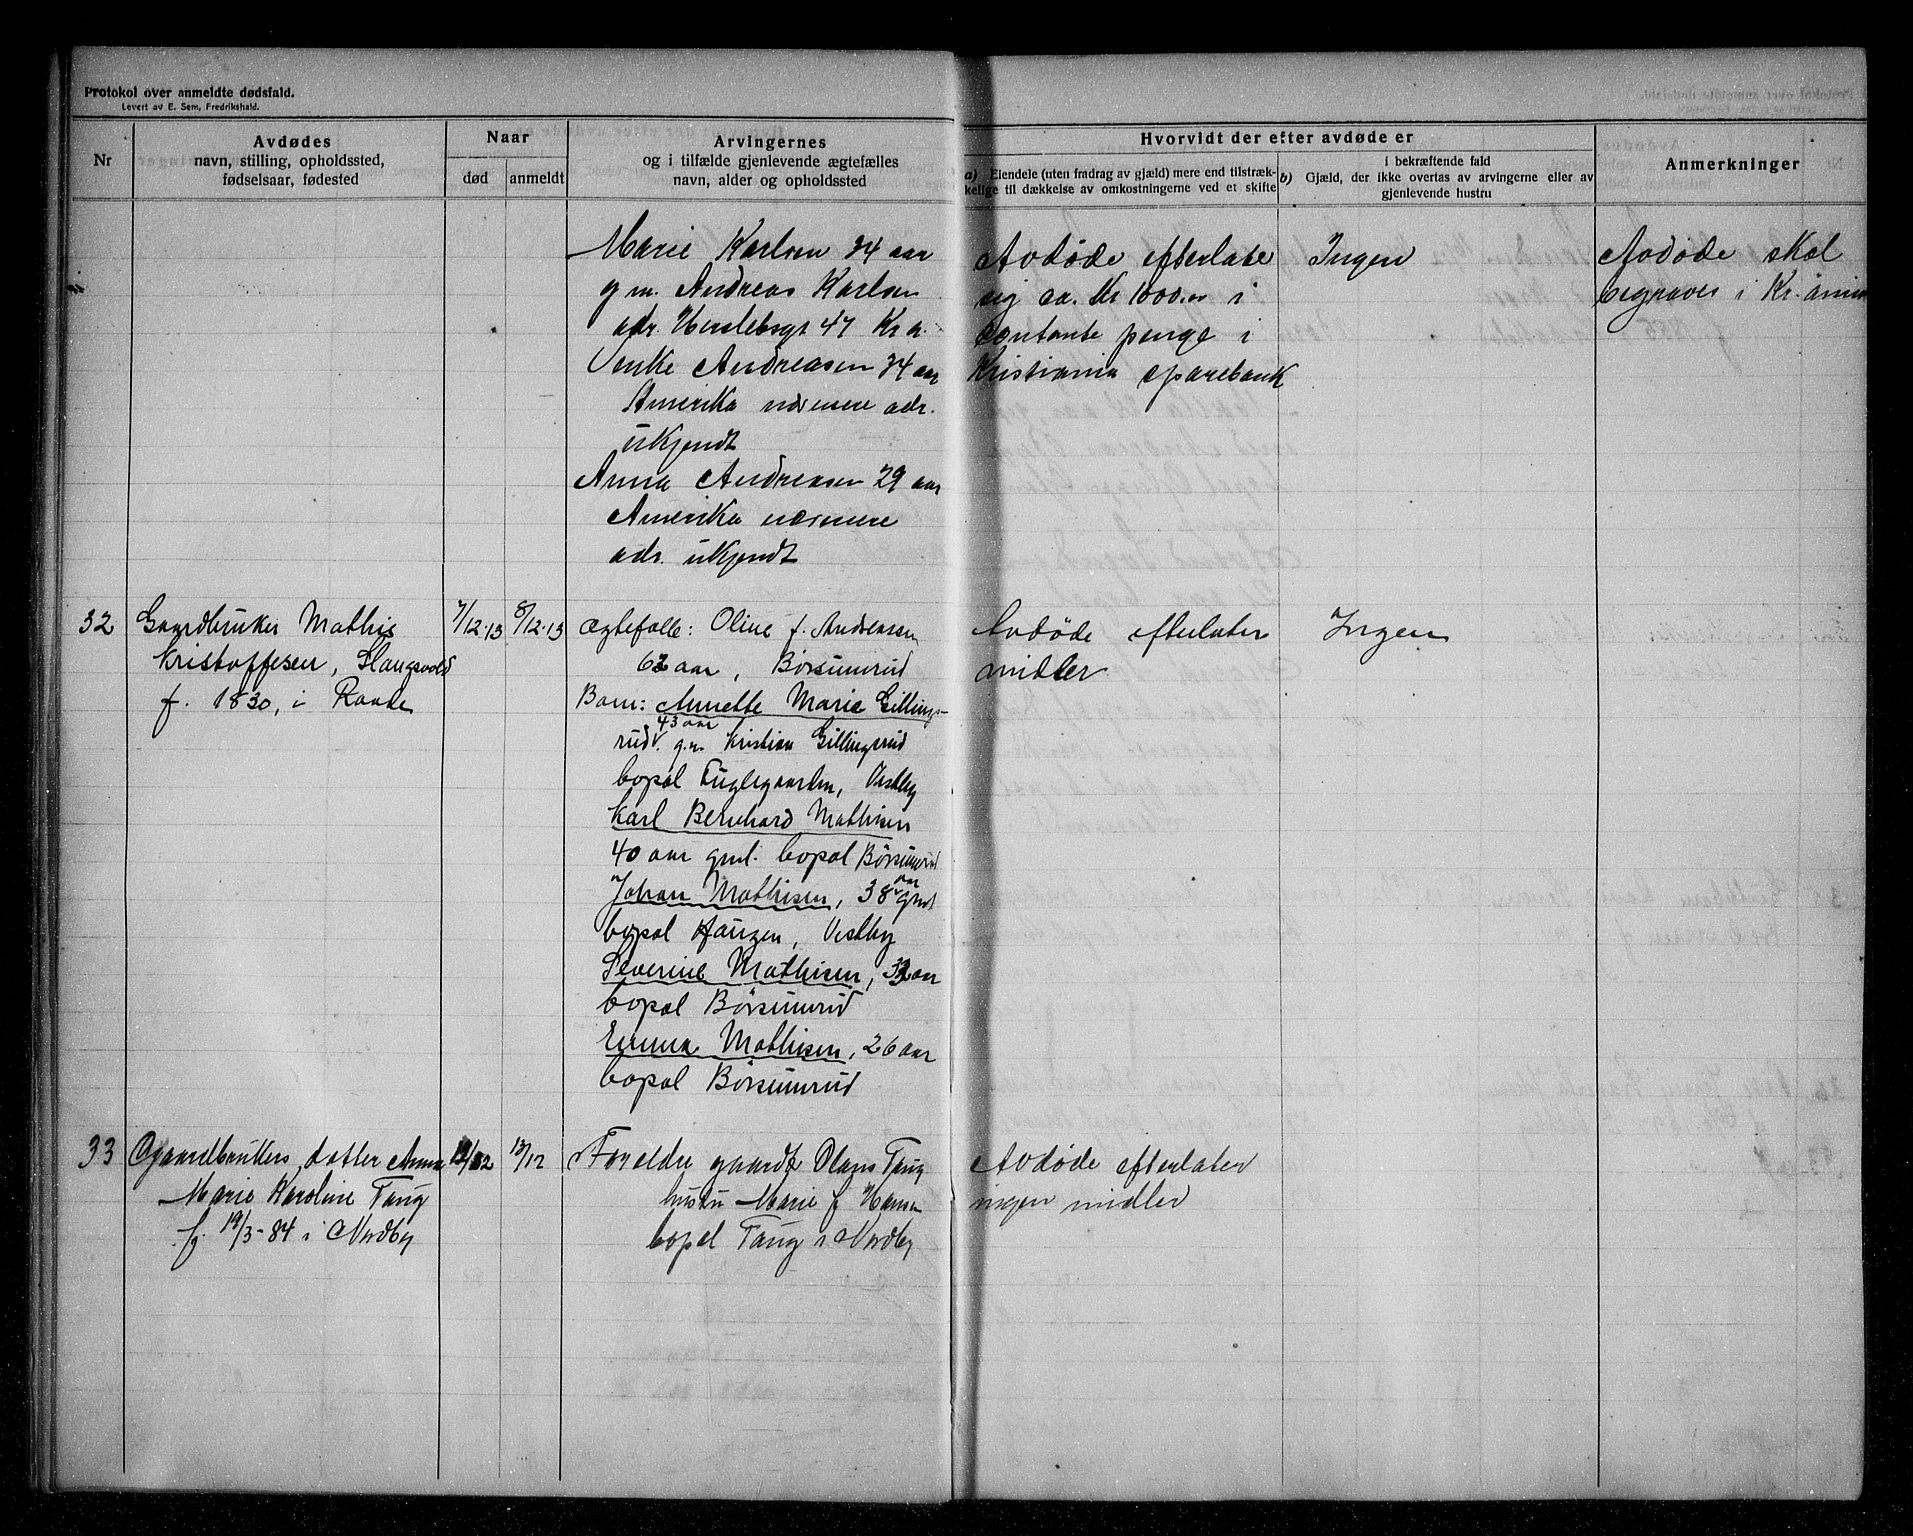 Protokol over anmeldte dødsfald.
Levert av E. Sem, Fredrikshald.
Nr
Avdødes
navn, stilling, opholdssted,
fødselsaar, fødested
Naar
død
anmeldt
Arvingernes
og i tilfælde gjenlevende ægtefælles
navn, alder og opholdssted
Hvorvidt der efter avdøde er
a) Eiendele (uten fradrag av gjæld) mere end tilstræk-
kelige til dækkelse av omkostningerne ved et skifte
i bekræftende fald
b) Gjæld, der ikke overtas av arvingerne eller av
gjenlevende hustru
Anmerkninger
Marie Karlsen 34 aar
g m. Andreas Karlsen
adr. Herslebsgt 47 Kr a.
Andreasen 34 aar
Amerika nærmere adr.
ukjendt
Anna Andreasen 29 aar
Amerika nærmere
adr. ukjendt
Avdøde efterlater
sig ca. Kr 1000.00 i
contante penge i
Kristiania sparebank
Ingen
Avdøde skal
begraves i Kr.ania
32
Gaardbruker Mathis
Kristoffesen, Slangsvold
f. 1830, i Raade
7/12.13
8/12.13
Ægtefolle: Oline f. Andreassen
62 aar, Børsumrud
Barn: Annette Marie Gillings-
43 aar
rud g.m. Kristian Gillingsrud
bopal Fuglegaarden, Vestby
Karl Bernhard Mathisen
40 aar gml. bopal Børsumrud
Johan Mathisen, 38 aar gml
bopal Haugen, Vestby
Severine Mathisen, 32 aar
bopal Børsumrud
Emma Mathisen, 26 aar
bopal Børsumrud
Avdøde efterlater
midler
Ingen
33
Gaardbrukers datter Anna
Marie Karoline Taug
f. 19/3-84 i Nordby
12/12
13/12
Foreldre gaardb Olaus Taug
hustru Marie f Hansen
bopel Taug i Nordby
Avdøde efterlater
ingen midler